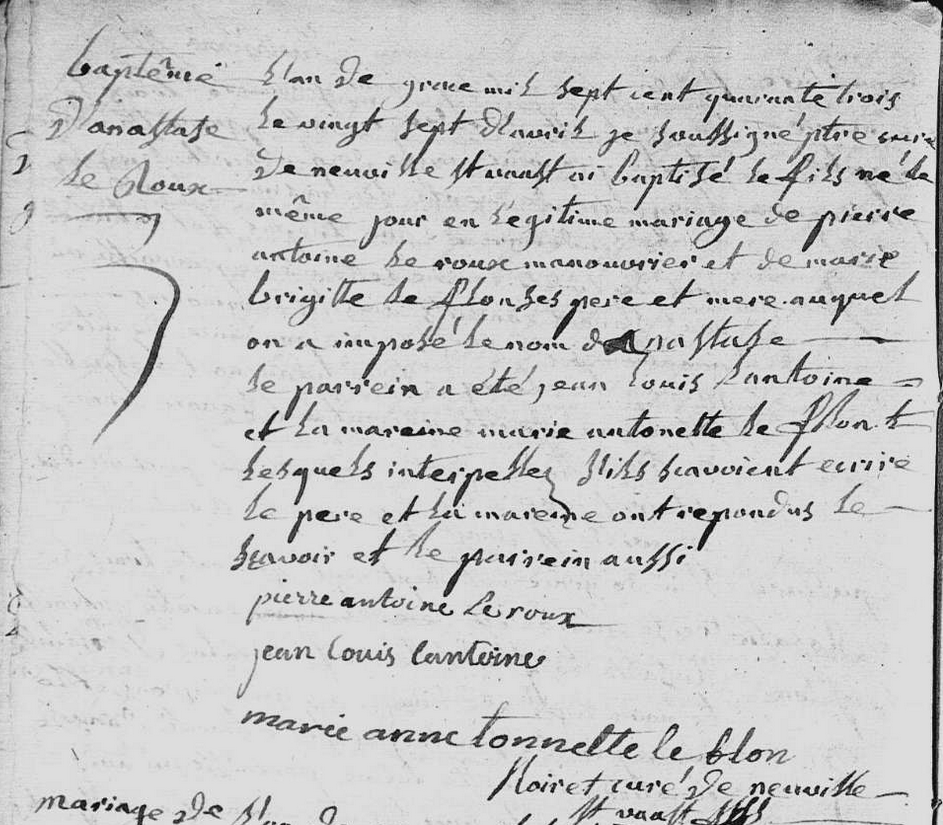 baptême
d'anastase
le Roux
L'an de grace mil sept cent quarante trois
le vingt sept d'avril je soussigné ptre curé
de neuville st vaast ai baptisé le fils né le
même jour en légitime mariage de pierre
antoine le roux manouvrier et de marie
brigitte le flon ses pere et mere auquel
on a imposé le nom d'anastase
le parrein a été jean louis lantoine
et la mareine marie antonette le flon
lesquels interpellez s'ils scavoient ecrire
le pere et la mareine ont repondus le
scavoir et le parrein aussi
pierre antoine le roux
jean louis lantoine
marie anne tonnette le blon
Noiret curé de neuville
st vaast
mariage de L'an de